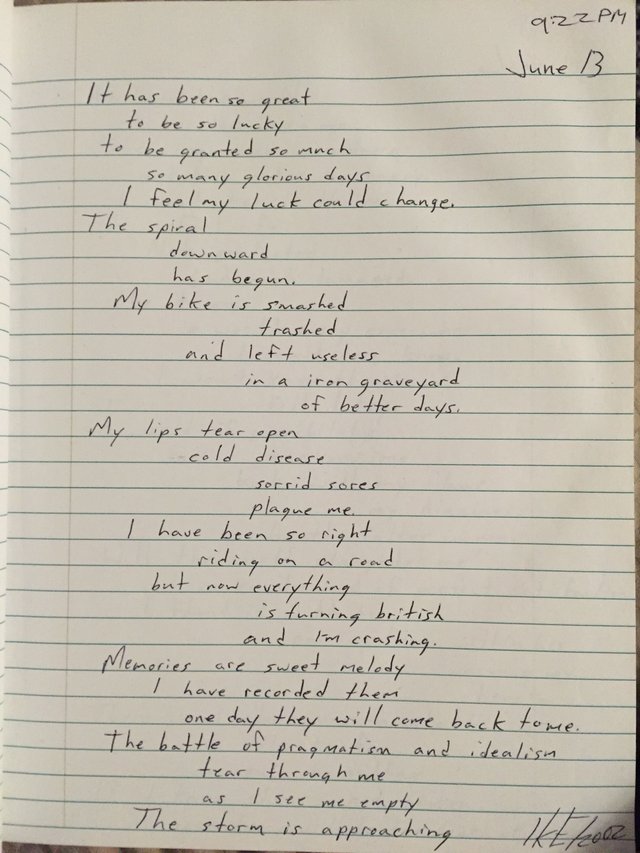 9:22 PM
June 13
It has been so great
to be so lucky
to be granted so much
so many glorious days
I feel my luck could change.
The spiral
downward
has begun.
My bike is smashed
trashed
and left useless
in a iron graveyard
of better days.
My lips tear open
cold disease
sorrid sores
plague me.
I have been so right
riding on a road
but now everything
is turning british
and I'm crashing.
Memories are sweet melody
I have recorded them
one day they will come back to me.
The battle of pragmatism and idealism
tear through me
as I see me empty
The storm is approaching
IKE/2002